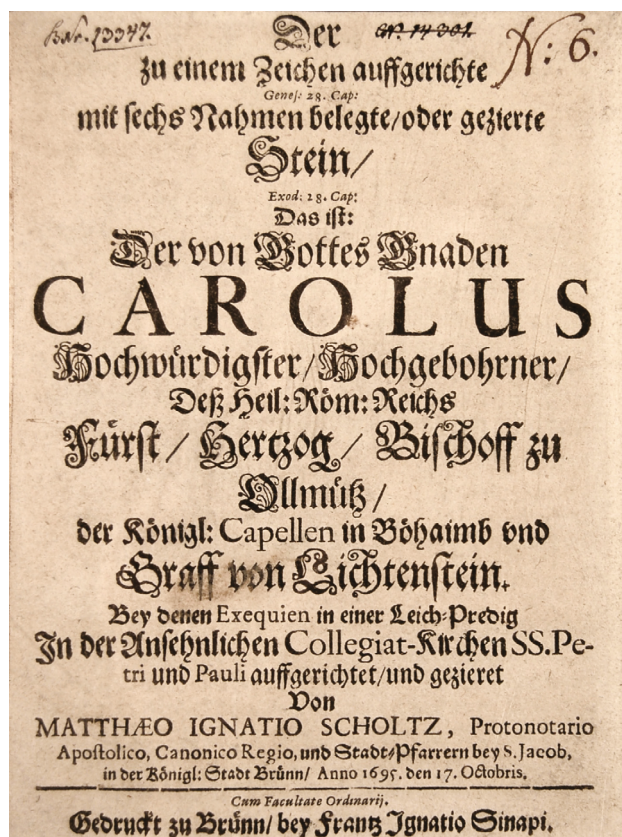 N: 6.
Der
zu einem Zeichen auffgerichte
Genes: 28. Cap:
mit sechs Nahmen belegte/oder gezierte
Stein/
Exod: 28. Cap:
Das ist:
Der von Gottes Gnaden
CAROLUS
Hochwürdigster/Hochgebohrner/
Deß Heil: Röm: Reichs
Fürst / Hertzog / Bischoff zu
Ollmütz /
der Königl: Capellen in Böhaimb vnd
Graff von Lichtenstein.
Bey denen Exequien in einer Leich-Predig
In der Ansehnlichen Collegiat-Kirchen SS.Pe-
tri und Pauli auffgerichtet/und gezieret
Von
MATTHÆO IGNATIO SCHOLTZ, Protonotario
Apostolico, Canonico Regio, und Stadt-Pfarrern bey S. Jacob,
in der Königl: Stadt Brünn/ Anno 1695. den 17. Octobris.
Cum Facultate Ordinarij.
Gedruckt zu Brünn/ bey Frantz Ignatio Sinapi.